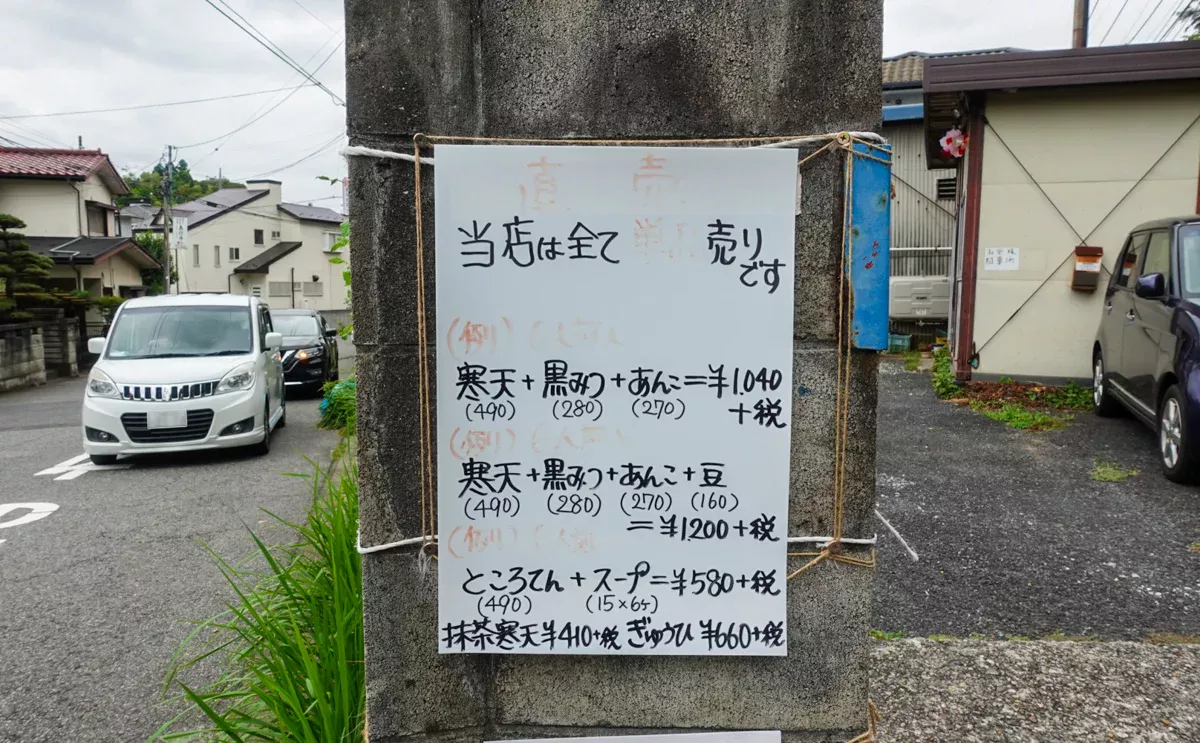 直売
当店は全て 単品 売り
です
(例)
寒天+黒みつ+あんこ=¥1.040
(490) (280) (270) +税
(例)
寒天+黒みつ+あんこ+豆
(490) (280) (270) (160)
=¥1.200+税
(例)
ところてん+スープ=¥580+税
(490) (15×6ケ)
抹茶寒天¥410+税 ぎゅうひ¥660+税